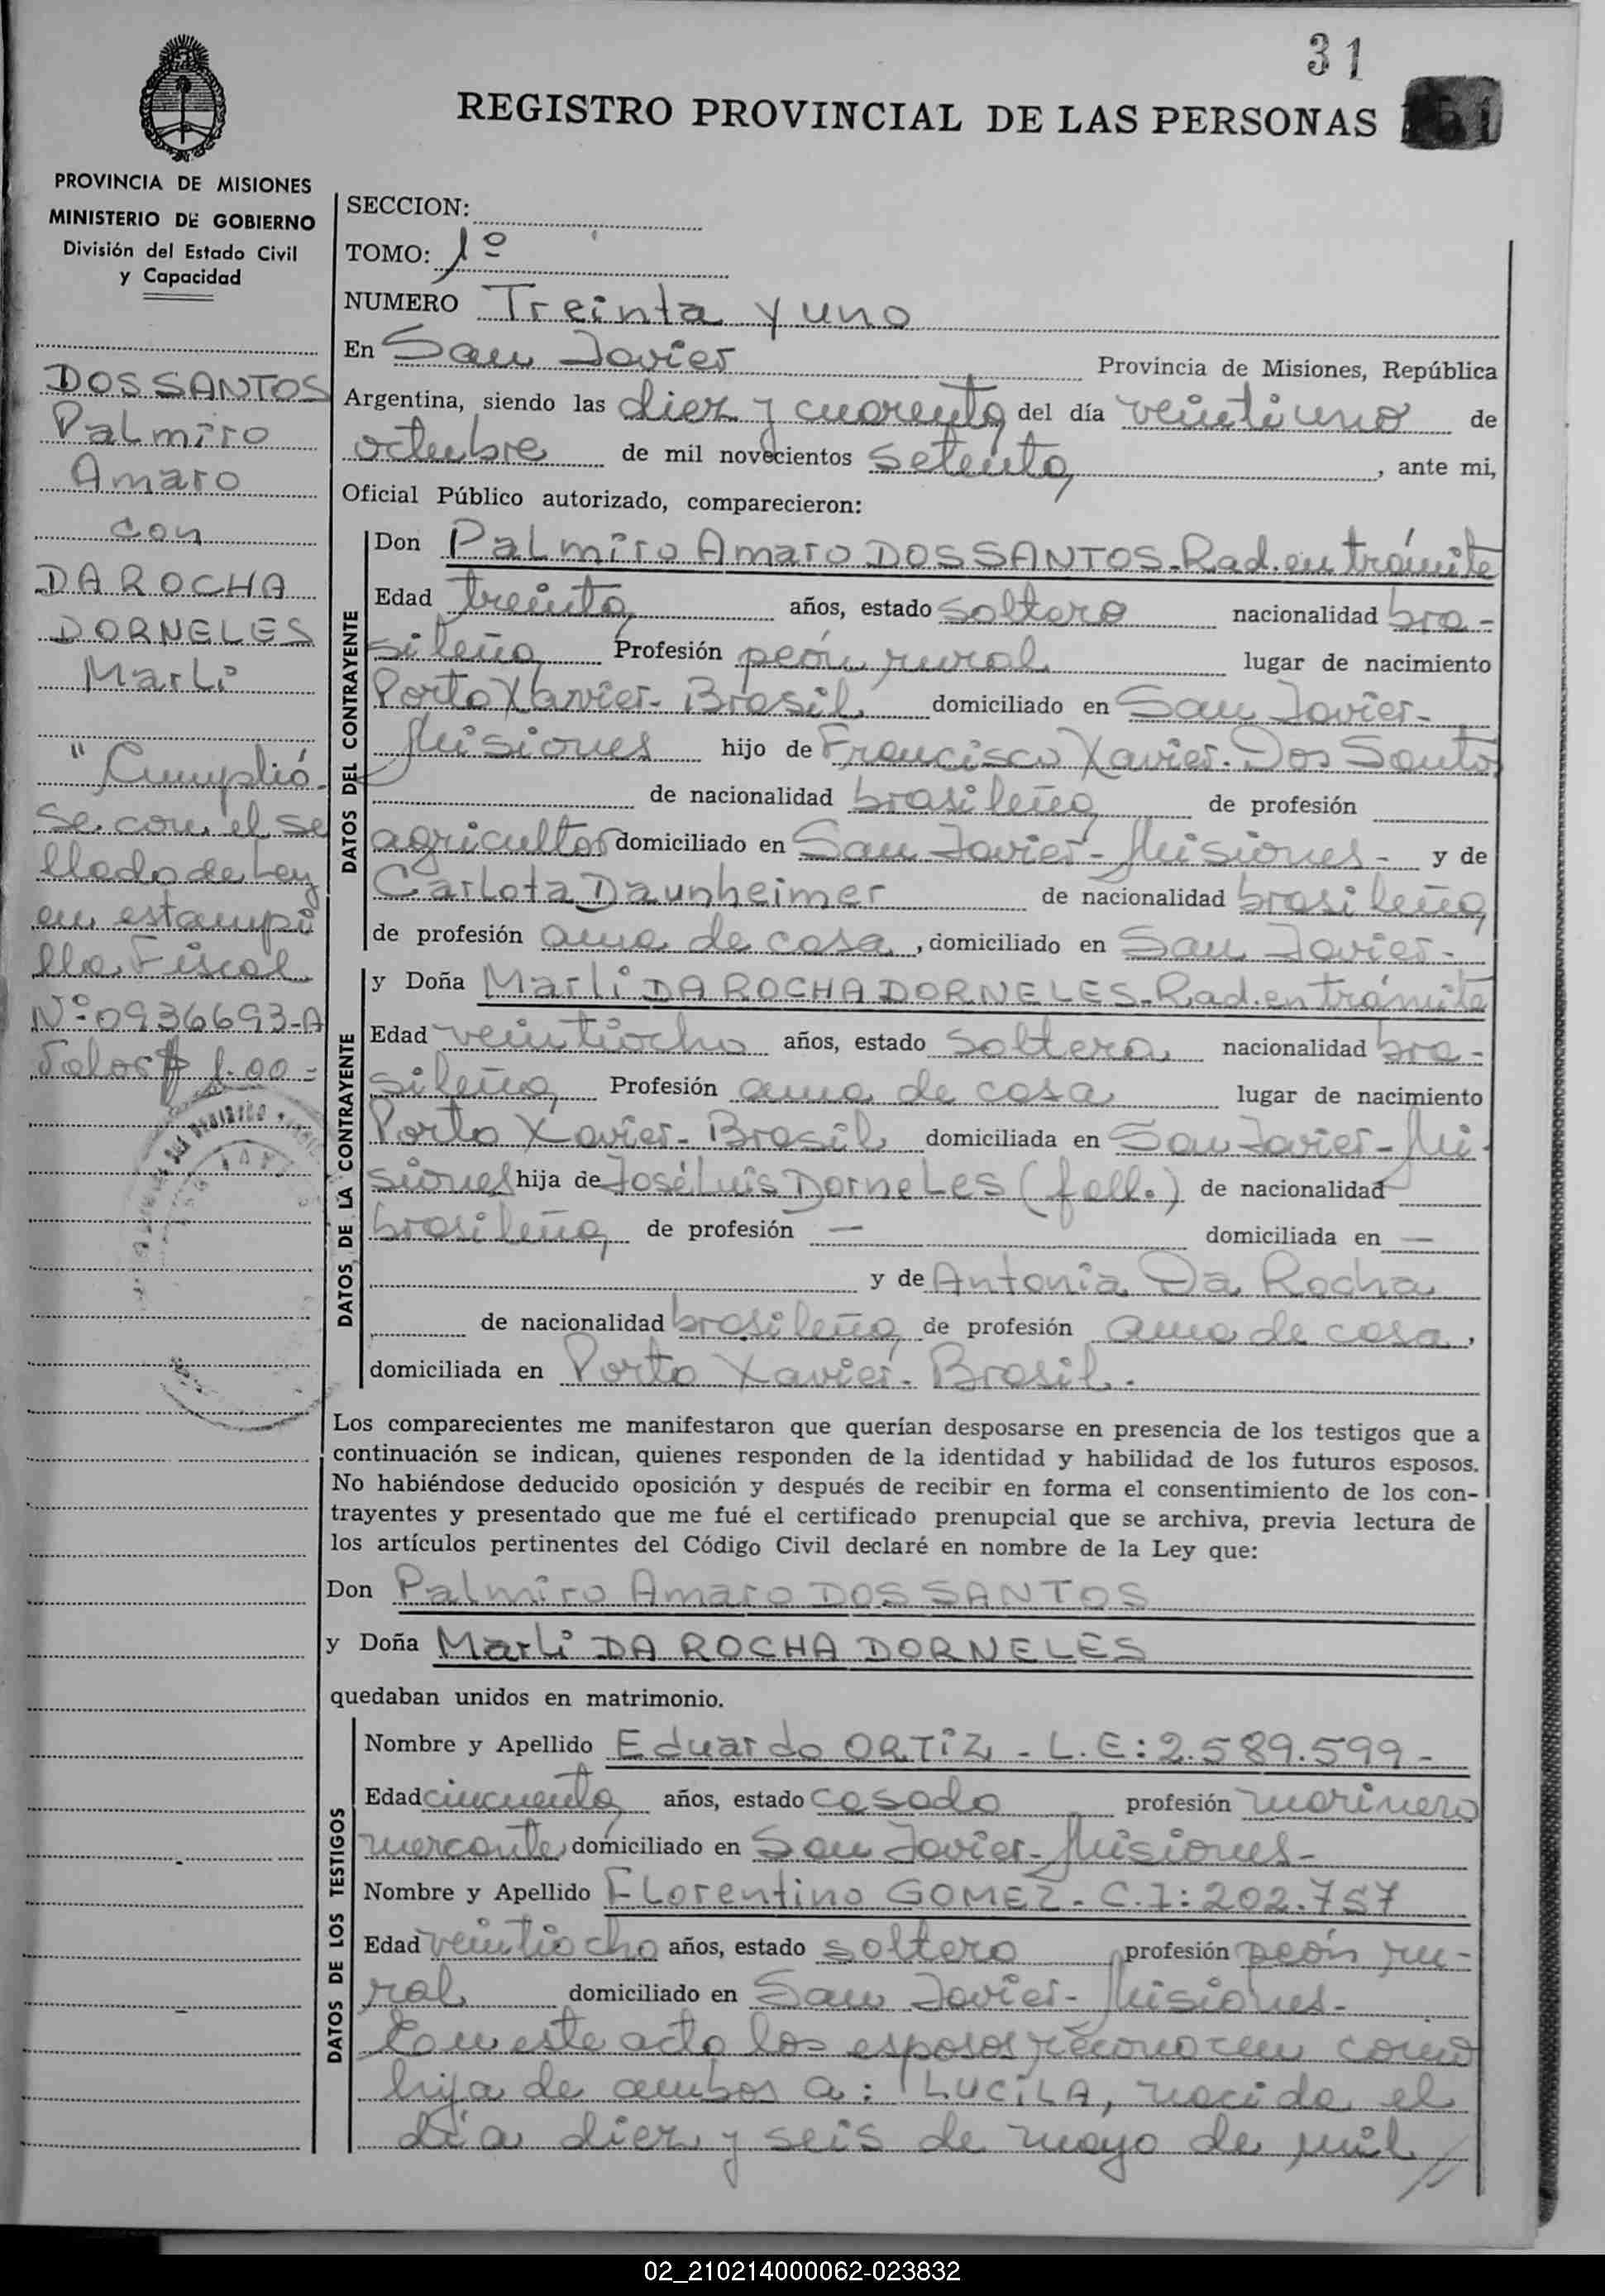 31
REGISTRO PROVINCIAL DE LAS PERSONAS
PROVINCIA DE MISIONES
MINISTERIO DE GOBIERNO
División del Estado Civil
y Capacidad
DOS SANTOS
Palmiro
Amaro
con
DA ROCHA
DORNELES
Marli
"Cumplió
se con el se
llado de Ley
en estampi
lla Fiscal
Nº 0936693-A
Valor $ 1.00=
SECCION:
TOMO: 1º
NUMERO Treinta y uno
En San Javier Provincia de Misiones, República
Argentina, siendo las diez y cuarenta del día veintiuno de
octubre de mil novecientos setenta, ante mi,
Oficial Público autorizado, comparecieron:
DATOS DEL CONTRAYENTE
Don Palmiro Amaro DOS SANTOS-Rad. en trámite
Edad treinta años, estado soltero nacionalidad bra-
sileña Profesión peón rural lugar de nacimiento
Porto Xavier- Brasil domiciliado en San Javier-
Misiones hijo de Francisco Xavier Dos Santos
de nacionalidad brasileña de profesión
agricultor domiciliado en San Javier- Misiones- y de
Carlota Daunheimer de nacionalidad brasileña
de profesión ama de casa, domiciliado en San Javier-
DATOS DE LA CONTRAYENTE
y Doña Marli DA ROCHA DORNELES-Rad. en trámite
Edad veintiocho años, estado soltera nacionalidad bra-
sileña Profesión ama de casa lugar de nacimiento
Porto Xavier- Brasil domiciliada en San Javier- Mi-
siones hija de José Luis Dorneles (fall.) de nacionalidad
brasileña de profesión — domiciliada en —
y de Antonia Da Rocha
de nacionalidad brasileña de profesión ama de casa,
domiciliada en Porto Xavier- Brasil.
Los comparecientes me manifestaron que querían desposarse en presencia de los testigos que a
continuación se indican, quienes responden de la identidad y habilidad de los futuros esposos.
No habiéndose deducido oposición y después de recibir en forma el consentimiento de los con-
trayentes y presentado que me fué el certificado prenupcial que se archiva, previa lectura de
los artículos pertinentes del Código Civil declaré en nombre de la Ley que:
Don Palmiro Amaro DOS SANTOS
y Doña Marli DA ROCHA DORNELES
quedaban unidos en matrimonio.
DATOS DE LOS TESTIGOS
Nombre y Apellido Eduardo ORTIZ - L.E: 2.589.599-
Edad cincuenta años, estado casado profesión marinero
mercante domiciliado en San Javier- Misiones-
Nombre y Apellido Florentino GOMEZ- C.I: 202.757
Edad veintiocho años, estado soltero profesión peón ru-
ral domiciliado en San Javier- Misiones-
Con este acto los esposos reconocen como
hija de ambos a: LUCILA, nacida el
día diez y seis de mayo de mil //
02_210214000062-023832